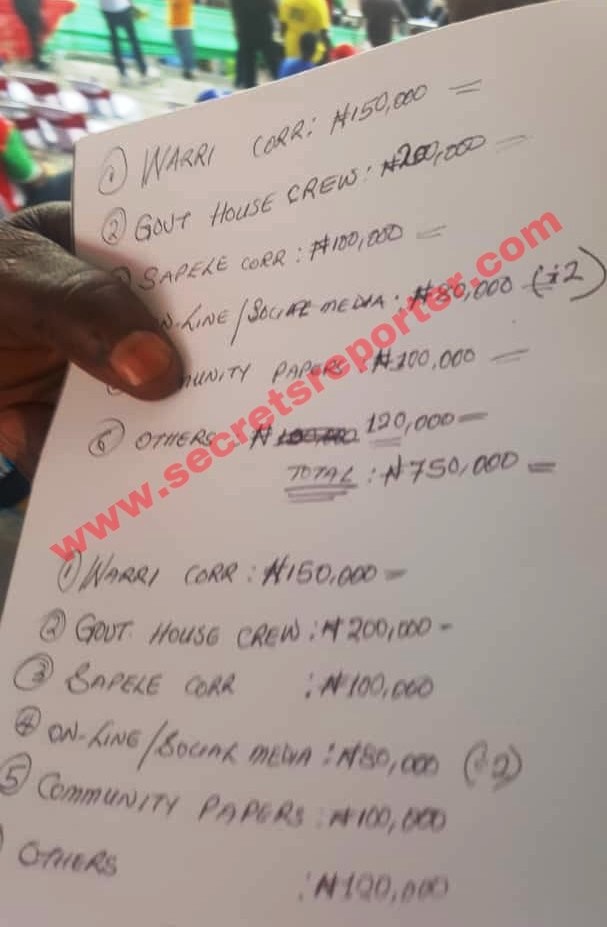 ① WARRI CORR: ₦150,000 =
② GOVT HOUSE CREW: ₦200,000 =
SAPELE CORR: ₦100,000 =
N-LINE/SOCIAL MEDIA: ₦80,000 (÷2)
MUNITY PAPERS: ₦100,000 =
⑥ OTHERS ₦ 120,000 =
TOTAL: ₦750,000 =
www.secretsreporter.com
① WARRI CORR: ₦150,000 =
② GOVT. HOUSE CREW: ₦200,000 -
③ SAPELE CORR : ₦100,000
④ ON-LINE/SOCIAL MEDIA: ₦80,000 (÷2)
⑤ COMMUNITY PAPERS: ₦100,000
OTHERS : ₦120,000